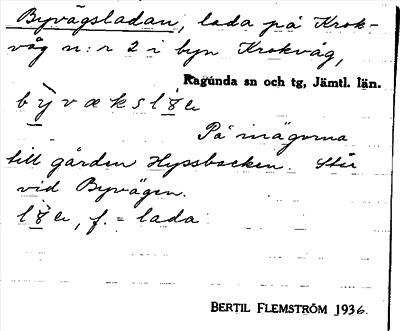 Byvägsladan, lada på Krok-
våg n:r 2 i byn Krokvåg,
Ragunda sn och tg, Jämtl. län.
På inägorna
till gården Hyssbacken. Står
vid Byvägen.
f. = lada
BERTIL FLEMSTRÖM 1936.